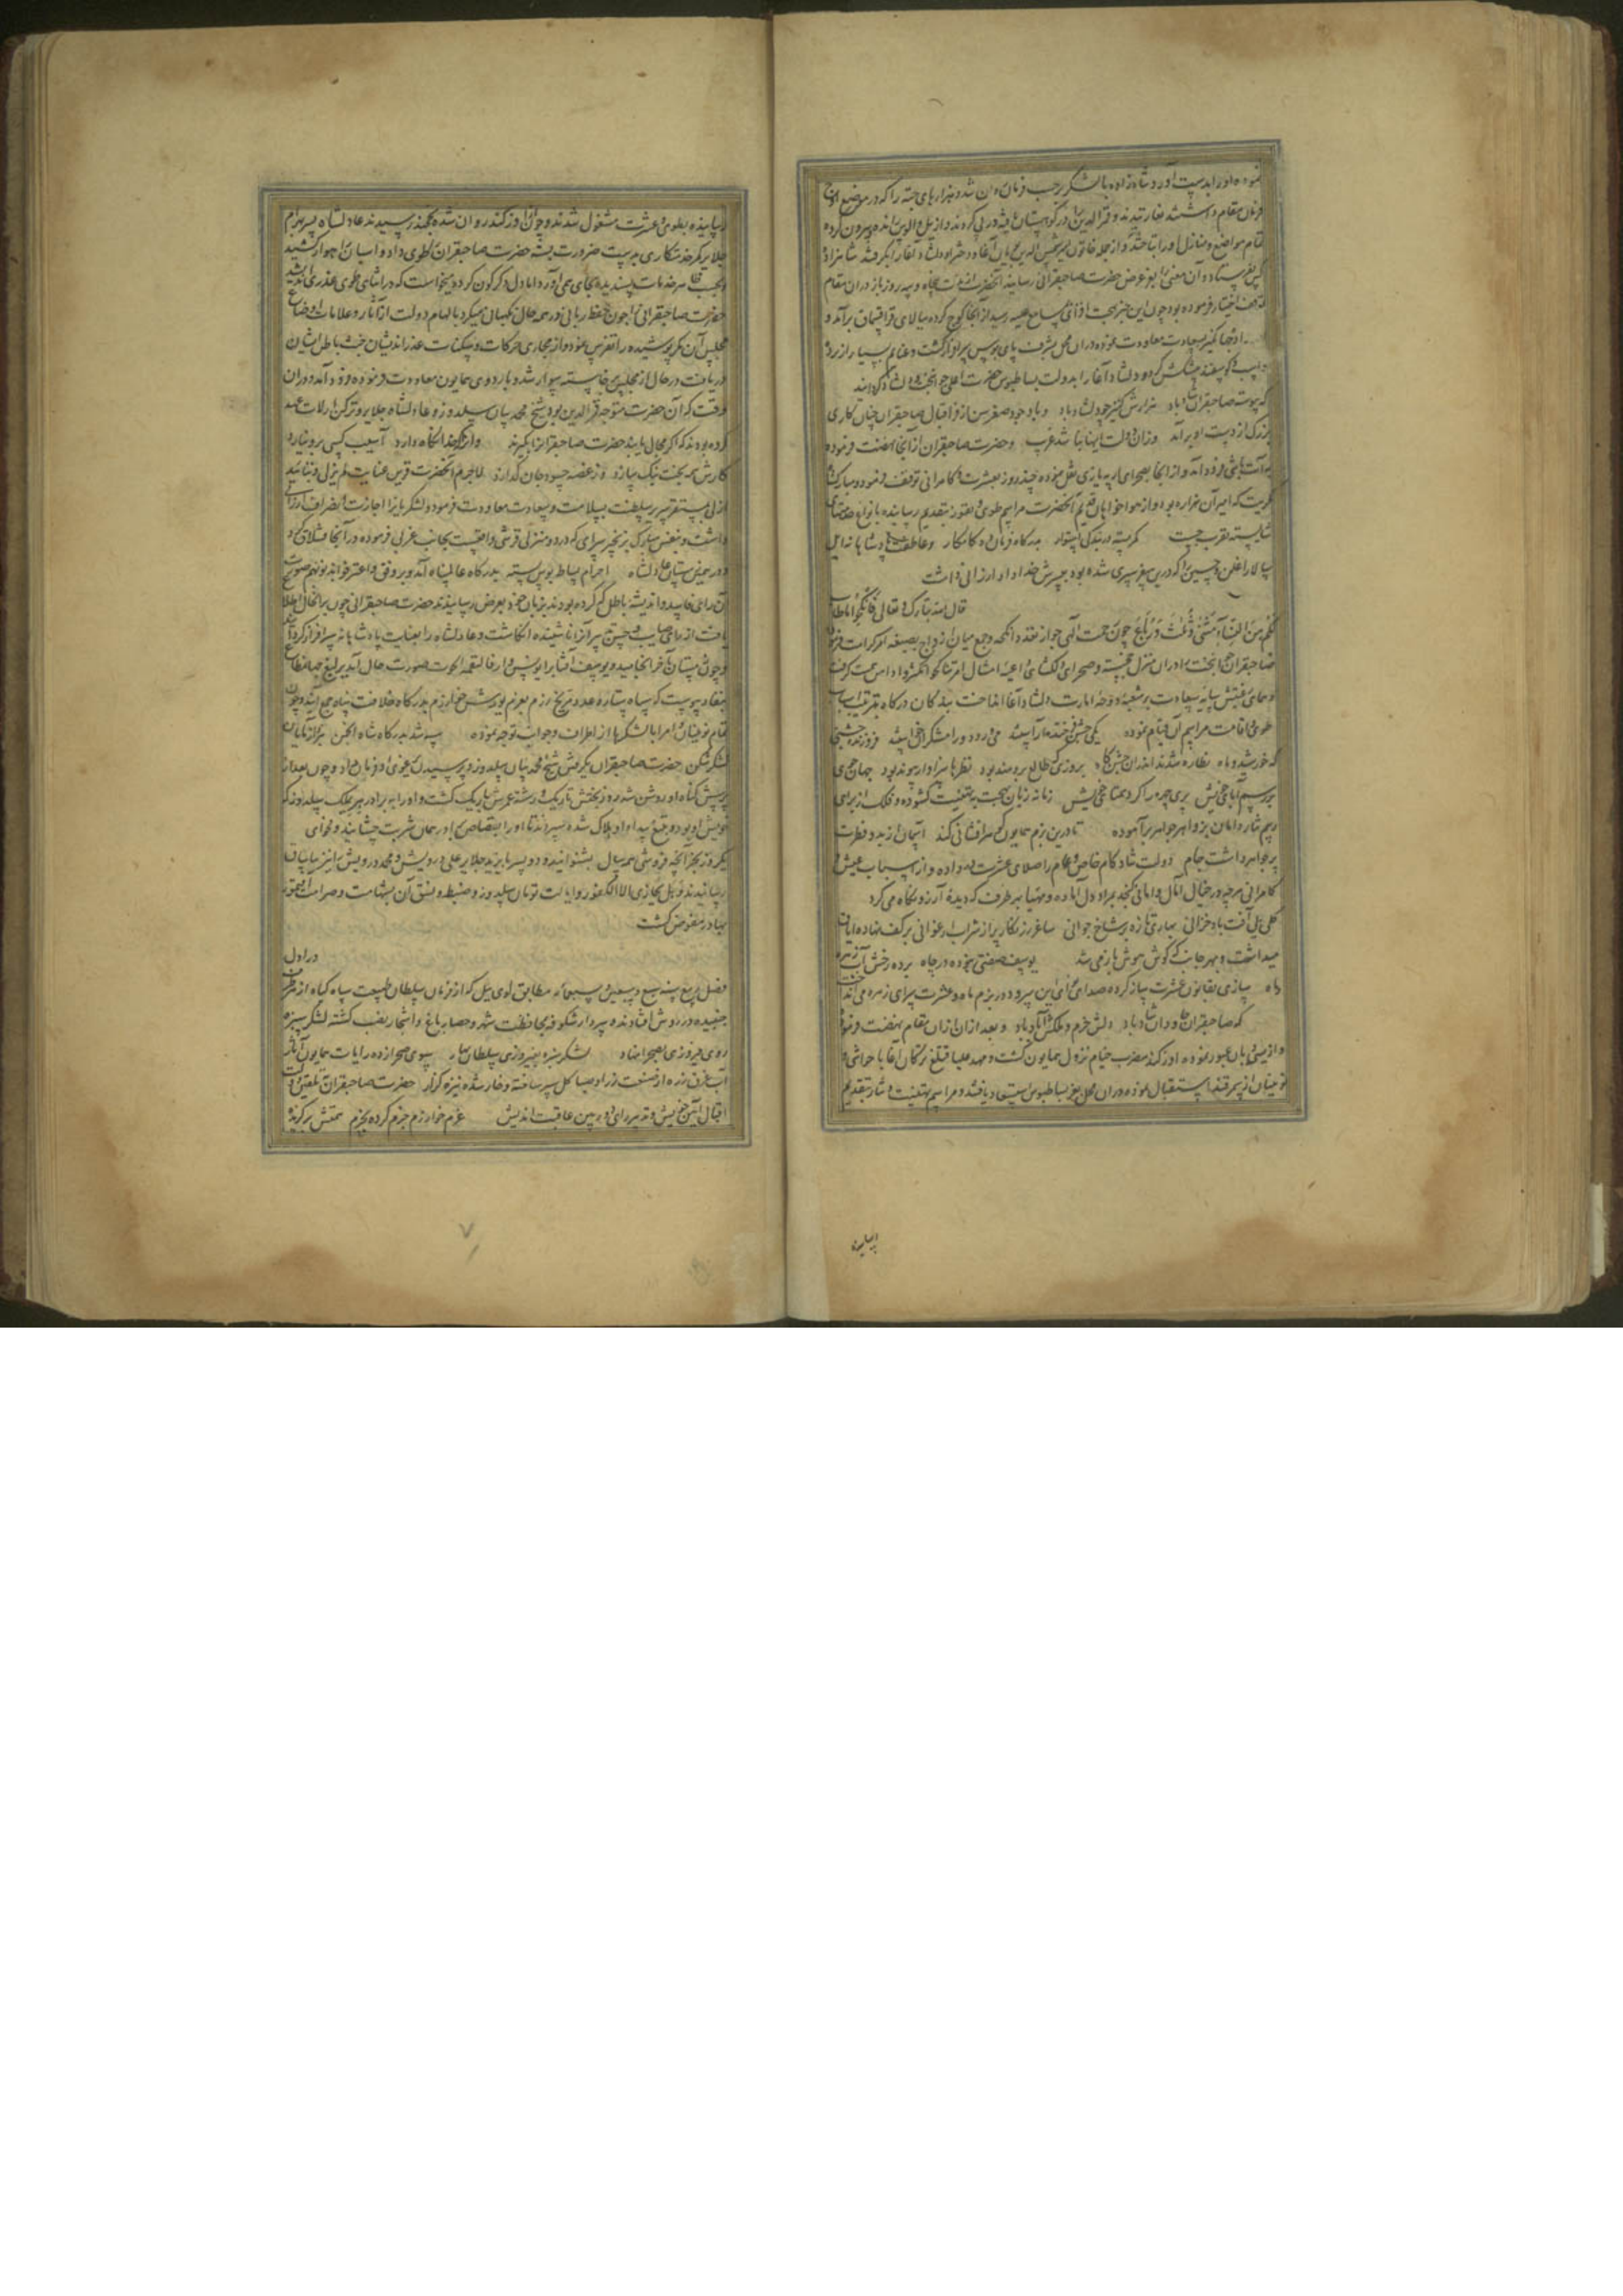 نموده او را بدست آورد شاه زاده با لشکر حسب فرمان روان شد و هزارهای جته را که در موضع
فرمان مقام داشتند بغارتیدند و قمرالدین را در کوهستان
تمام مواضع و منازل او را بتاختند و از جمله خاتون میر شمس الدین بیان آغا و دختر او دلشاد آغا را بگرفتند شاه زاده
کس بفرستاد و آن معنی را بعز عرض حضرت صاحبقرانی رسانید آنحضرت پنجاه و سه روز باز در آن مقام
توقف اختیار فرموده بود چون این خبر بهجت افزای بمسامع علیه رسید از آنجا کوچ کرده ببالای قراقسماق برآمد و
جهانگیر بسعادت معاودت نموده در آن محل بشرف پای بوس سرافراز گشت و غنایم بسیار از برده
و اسب و گوسفند پیشکش کرد و دلشاد آغا را بدولت بساط بوس حضرت اعلی
که پیوسته صاحبقران شاد باد هزارش کنیز چو دلشاد باد و با وجود صغر سن از فر اقبال صاحبقران چنان کاری
بزرگ از دست او برآمد وزان دولت اینها نباشد غریب و حضرت صاحبقران از آنجا نهضت فرموده
به آت باشی فرود آمد و از آنجا بصحرای ارپه یازی نقل نموده چند روز بعشرت و کامرانی توقف فرمود و مبارکشاه
مکریت که امیر آن هزاره بود و از هواخواهان قدیم آنحضرت مراسم طوی و تقوز بتقدیم رسانیده بانواع خدمتهای
شایسته تقرب جست کمر بسته در بندگی استوار بدرگاه فرمان ده کامکار و عاطفت پادشاهانه ایل
سالار اغلن و حسین را که در این سفر سپری شده بود بپسرش خداداد ارزانی داشت
قال الله تبارک و تعالی فانکحوا ما طاب
لکم من النساء مثنی و ثلث و رباع چون رحمت الهی جواز
صاحبقران جوانبخت را در آن منزل خجسته و صحرای دلگشای
و همای همتش سایه سعادت
طوی و اقامت مراسم آن قیام نموده یکی جشن فرخنده آراستند می و رود و رامشگران خواستند فروزنده جشنی
که خورشید و ماه نظاره شدند اندر آن جشنگاه بروزی که طالع برومند بود نظرها سزاوار پیوند بود جهانجوی
بر رسم آبای خویش پری چهره را کرد همتای خویش زمانه زبان بهجت بتهنیت گشوده و فلک از برای
رسم نثار دامان پر جواهر برآموده تا در این بزم همایون گوهرافشانی کند آسمان
پر جواهر داشت جام دولت شاد کام خاص و عام را صلای عشرت در داده و از اسباب عیش و
کامرانی هر چه در خیال آمال و امانی گنجد بمراد دل آماده و مهیا بهر طرف که دیده آرزو نگاه می کرد
گلی بی آفت باد خزانی بهاری تازه بر شاخ جوانی ساغر زرنگار پر از شراب ارغوانی بر کف نهاده
میداشت و بهر جانب که گوش هوش باز می شد یوسف صفتی نبوده در چاه برده رخش آب
ماه سازی بقانون عشرت ساز کرده صدای ادای این سرود در بزم ماه و عشرت سرای زهره می انداخت
که صاحبقران جاودان شاد باد دلش خرم و ملکش آباد باد و بعد از آن از آن مقام نهضت فرمود
و از یسی دابان عبور نموده اوزکند مضرب خیام نزول همایون گشت و مهد علیا قتلغ ترکان آغا با حواشی و
نوینان از سمرقند استقبال نموده در آن محل بعز بساط بوس استسعاد یافتند و مراسم تهنیت و نثار بتقدیم
رسانیده
رسانیده بطوی و عشرت مشغول شدند و چون از اوزکند روان شده بخجند رسیدند عادلشاه پسر بهرام
جلایر کمر خدمتکاری بدست ضرورت بسته حضرت صاحبقران را طوی داد و اسبان را هوار کشید
و بحسب ظاهر خدمات پسندیده بجای می آورد اما دل دگرگون کرده میخواست که در اثنای طوی غدری اندیشد
حضرت صاحبقرانی را چون حفظ ربانی در همه حال نگهبان میکرد بالهام دولت از آثار و علامات اوضاع
مجلس آن مکر پوشیده را تفرس نمود و از مجاری حرکات و سکنات غدراندیشان خبث باطن ایشان
دریافت در حال از مجلس برخاسته سوار شد و باردوی همایون معاودت فرموده فرود آمد و در آن
وقت که آن حضرت متوجه قمرالدین بود شیخ محمد بیان سلدوز و عادلشاه جلایر و ترکن ارلات عهد
کرده بودند که اگر مجال یابند حضرت صاحبقران را بگیرند و آنرا که خدا نگاه دارد آسیب کسی برو نیارد
کارش همه بخت نیک سازد وز غصه حسود جان گدازد لاجرم آنحضرت قرین عنایت لم یزلی و تایید
ازلی بمستقر سریر سلطنت بسلامت و سعادت معاودت فرمود و لشکریان را اجازت انصراف ارزانی
داشت و بنفس مبارک بزنجیر سرای که در دو منزلی قرشی واقعست بجانب غربی فرموده در آنجا قشلاق کرد
و در همین زمستان عادلشاه احرام بساط بوس بسته بدرگاه عالم پناه آمد و بر وفق و اعترفوا بذنوبهم صورت
آن رای فاسد و اندیشه باطل که کرده بودند بزبان خود بعرض رسانید حضرت صاحبقرانی چون بر آن حال اطلاع
یافت از رای صایب و حسن سیر آنرا ناشنیده انگاشت و عادلشاه را بعنایت پادشاهانه سرافراز گردانید
و چون زمستان بآخر انجامید و یوسف آفتاب را یونس وار فالتقمه الحوت صورت حال آمد یرلیغ جهانمطاع
بنفاذ پیوست که سپاه ستاره عدد مریخ رزم بعزم یورش خوارزم بدرگاه خلافت پناه جمع آیند و چون
تمام نوینان و امرا با لشکرها از اطراف و جوانب توجه نموده سپه شد بدرگاه شاه انجمن
لشکرشکن حضرت صاحبقران بگرفتن شیخ محمد بیان سلدوز و پرسیدن یرغوی او فرمان داد و چون بعد از
پرسش گناه او روشن شد روز بختش تاریک و رشته عمرش باریک گشت و او را به برادر هری ملک سلدوز که
خویش او بود و به تیغ بیداد او هلاک شده سپردند تا او را بقصاص برادر همان شربت چشانید و فحوای
یک روز بخر آنچه فروشی همه سال بشنوانید و دو پسر بایزید جلایر علی درویش و محمد درویش را نیز بیاساق
رسانیدند و هل یجازی الا الکفور و ایالت تومان سلدوز و ضبط و نسق آن بشهامت و صرامت آقتمور
بهادر مفوض گشت
در اول
فصل ربیع سنه سبع و سبعین و سبعمائه مطابق لوی ییل که از فرمان سلطان طبیعت سپاه گیاه از هر طرف
جنبیده در روش افتادند و سردار شکوفه بمحافظت شهر و حصار باغ و اشجار نصب گشته لشکر سبزه
روی فیروزی بصحرا نهاد لشکر سبزه بفیروزی سلطان بهار سوی صحرا زده رایات همایون آثار
آب غرق زره از صنعت زراد صبا گل سپر ساخته و خار شده نیزه گزار حضرت صاحبقران
اقبال آئین خویش و تدبیر رای دوربین عاقبت اندیش عزم خوارزم جزم کرده بحزم همتش برگزید